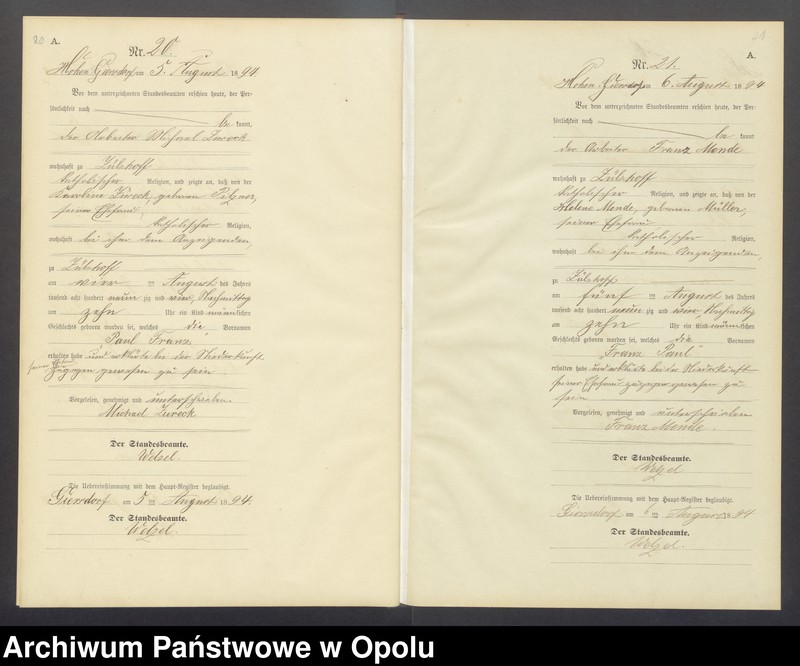 20 A.
Nr. 20.
Hohen Giersdorf am 5. August 1894.
Vor dem unterzeichneten Standesbeamten erschien heute, der Per-
sönlichkeit nach
be kannt,
der Arbeiter Zureck
wohnhaft zu Zülzhoff
katholischer Religion, und zeigte an, daß von der
Karoline Zureck, geborenen
seiner Ehefrau,
katholischer Religion,
wohnhaft bei ihm dem Anzeigenden,
zu Zülzhoff
am vier ten August des Jahres
tausend acht hundert neun zig und vier, Nachmittags
zehn Uhr ein Kind männlichen
Geschlechts geboren worden sei, welches die Vornamen
"Paul Franz"
erhalten habe und erklärte bei der Niederkunft
seiner Ehefrau
zugegen gewesen zu sein
Vorgelesen, genehmigt und unterschrieben.
Michael Zureck
Der Standesbeamte.
Welzel.
Die Uebereinstimmung mit dem Haupt-Register beglaubigt.
Giersdorf am 5 ten August 1894.
Der Standesbeamte.
Welzel.
21
A.
Nr. 21.
Hohen Giersdorf am 6. August 1894
Vor dem unterzeichneten Standesbeamten erschien heute, der Per-
sönlichkeit nach
be kannt
der Arbeiter Franz Monde
wohnhaft zu Zülzhoff
katholischer Religion, und zeigte an, daß von der
Helene Monde, geborenen Müller,
seiner Ehefrau
katholischer Religion,
wohnhaft bei ihm dem Anzeigenden,
zu Zülzhoff
am fünf ten August des Jahres
tausend acht hundert neun zig und vier, Nachmittag
zehn Uhr ein Kind männlichen
Geschlechts geboren worden sei, welches die Vornamen
"Franz Paul"
erhalten habe und erklärte bei der Niederkunft
seiner Ehefrau zugegen gewesen zu
sein
Vorgelesen, genehmigt und unterschrieben
Franz Monde.
Der Standesbeamte.
Welzel
Die Uebereinstimmung mit dem Haupt-Register beglaubigt.
Giersdorf am 6 ten August 1894
Der Standesbeamte.
Welzel.
Archiwum Państwowe w Opolu